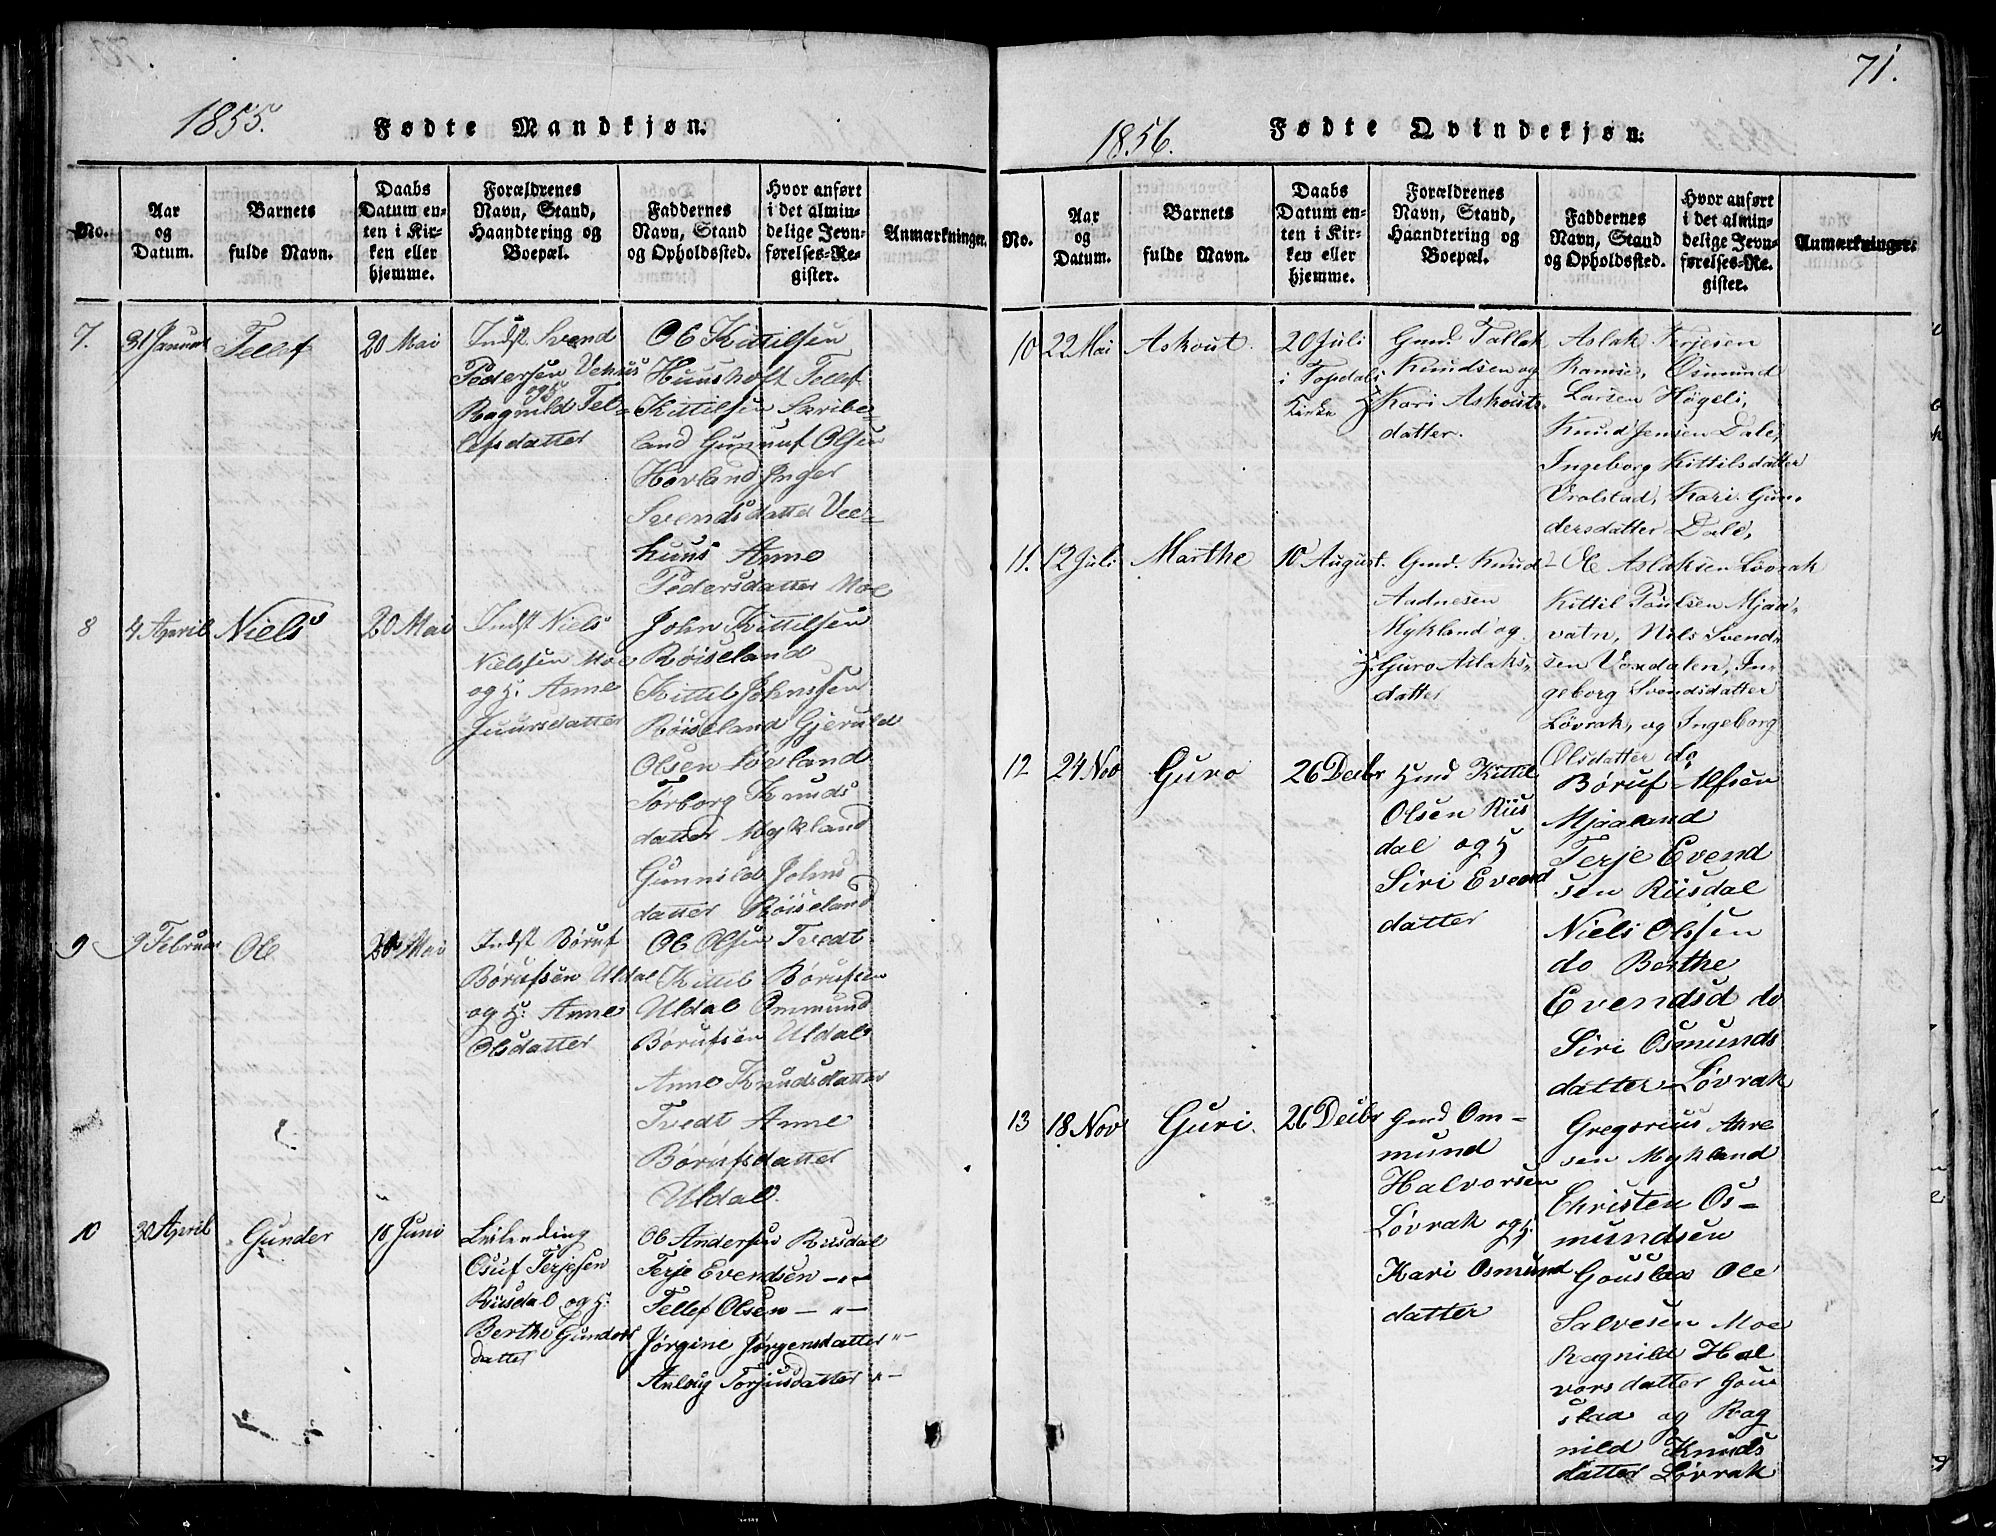 1855.
Fødte Mandkjøn.
No.
Aar
og
Datum.
Barnets
fulde Navn.
Daabs
Datum en-
ten i Kir-
ken eller
hjemme.
Forældrenes
Navn, Stand,
Haandtering og
Boepæl.
Faddernes
Navn, Stand
og Opholdssted.
Hvor anført
i det almin-
delige Jevn-
førelses-Re-
gister.
Anmærkninger.
7.
31 Januar
Tellef
20 Mai
Indst. Svend
Pedersen Vehus
og H
Ragnild Tel-
lefsdatter
Ole Kittilsen
Huusholt Tellef
Kittilsen Skribe-
land Gunnuf Olsen
Hovland Inger
Svendsdatter Vee-
huus Anne
Pedersdatter Moe
8
4 April
Niels
20 Mai
Indst Niels
Nielssen Moe
og H. Anne
Juursdatter
John Kittilsen
Røiseland
Kittil Johnssen
Røiseland Gjeruld
Olsen Løvland
Torborg Knuds
datter Mykland
Gunnild Johns
datter Røiseland
9
9 Februar
Ole
20 Mai
Indst Børuf
Børufsen Uldal
og H. Anne
Olsdatter
Ole Olsen Tvedt
Kittil Børufsen
Uldal Ommund
Børufsen Uldal
Anne Knudsdatter
Tvedt Anne
Børufsdatter
Uldal.
10
30 April
Gunder
10 Juni
Leilending
Osuf Terjesen
Riisdal og H.
Berthe Gunders
datter
Ole Andersen Riisdal
Terje Evendsen - " -
Tellef Olsen - " -
Jørgine Jørgensdatter " -
Anlaug Torjusdatter " -
71.
1856.
Fødte Qvindekjøn.
No.
Aar
og
Datum.
Barnets
fulde Navn.
Daabs
Datum en-
ten i Kir-
ken eller
hjemme.
Forældrenes
Navn, Stand,
Haandtering og
Boepæl.
Faddernes
Navn, Stand
og Opholdssted.
Hvor anført
i det almin-
delige Jevn-
førelses-Re-
gister.
Anmærkninger.
10
22 Mai
Askout.
20 Juli
i Topdals
Kirke
Gmd. Tallak
Knudsen og
H Kari Askouts-
datter.
Aslak Terjesen
Ramse, Osmund
Larsen Høgeli,
Knud Jensen Dale,
Ingeborg Kittilsdatter
Vralstad, Kari Gun-
dersdatter Dale,
11.
12 Juli
Marthe
10 August.
Gmd. Knud
Aadnesen
Mykland og
H. Guro Aslaks-
datter
Ole Aslaksen Løvrak
Kittil Poulsen Mjaa-
vatn, Nils Svend-
sen Voxdalen, In-
geborg Svendsdatter
Løvrak, og Ingeborg
Olsdatter do
12
24 Nov
Guro
26 Decbr
Gmd Kittil
Olsen Riis
dal og H
Siri Evend
datter
Børuf Alfsen
Mjaaland
Terje Evend
sen Riisdal
Niels Olssen
do Berthe
Evendsd do
Siri Osmunds
datter Løvrak
13
18 Nov
Guri.
26 Decbr
Gmd Om-
mund
Halvorsen
Løvrak og H.
Kari Osmund
datter
Gregorius Aare
sen Mykland
Christen Os-
mundsen
Gouslaa Ole
Salvesen Moe
Ragnild Hal
vorsdatter Gou
slaa og Rag
nild Knuds
datter Løvrak